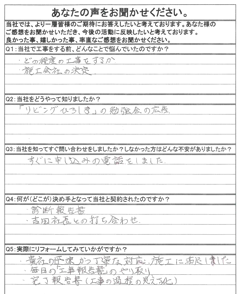 あなたの声をお聞かせください。
当社では、より一層皆様のご期待にお答えしたいと考えております。あなた様の
ご感想をお聞かせいただき、今後の活動に反映したいと考えております。
良かった事、嬉しかった事、率直なご感想をお聞かせください。
Q1:当社で工事をする前、どんなことで悩んでいたのですか?
・どの程度の工事をするか
・施工会社の決定
Q2:当社をどうやって知りましたか?
「リビングひろしま」の勉強会の広告
Q3:当社を知ってすぐ問い合わせをしましたか?しなかった方はどんな不安がありましたか?
すぐに申し込みの電話をしました
Q4:何が(どこが)決め手となって当社と契約されたのですか?
・診断報告書
・吉田社長との打ち合わせ
Q5:実際にリフォームしてみていかがですか?
・毎日の「工事報告書」のやり取り
・完了報告書(工事の過程の見える化)